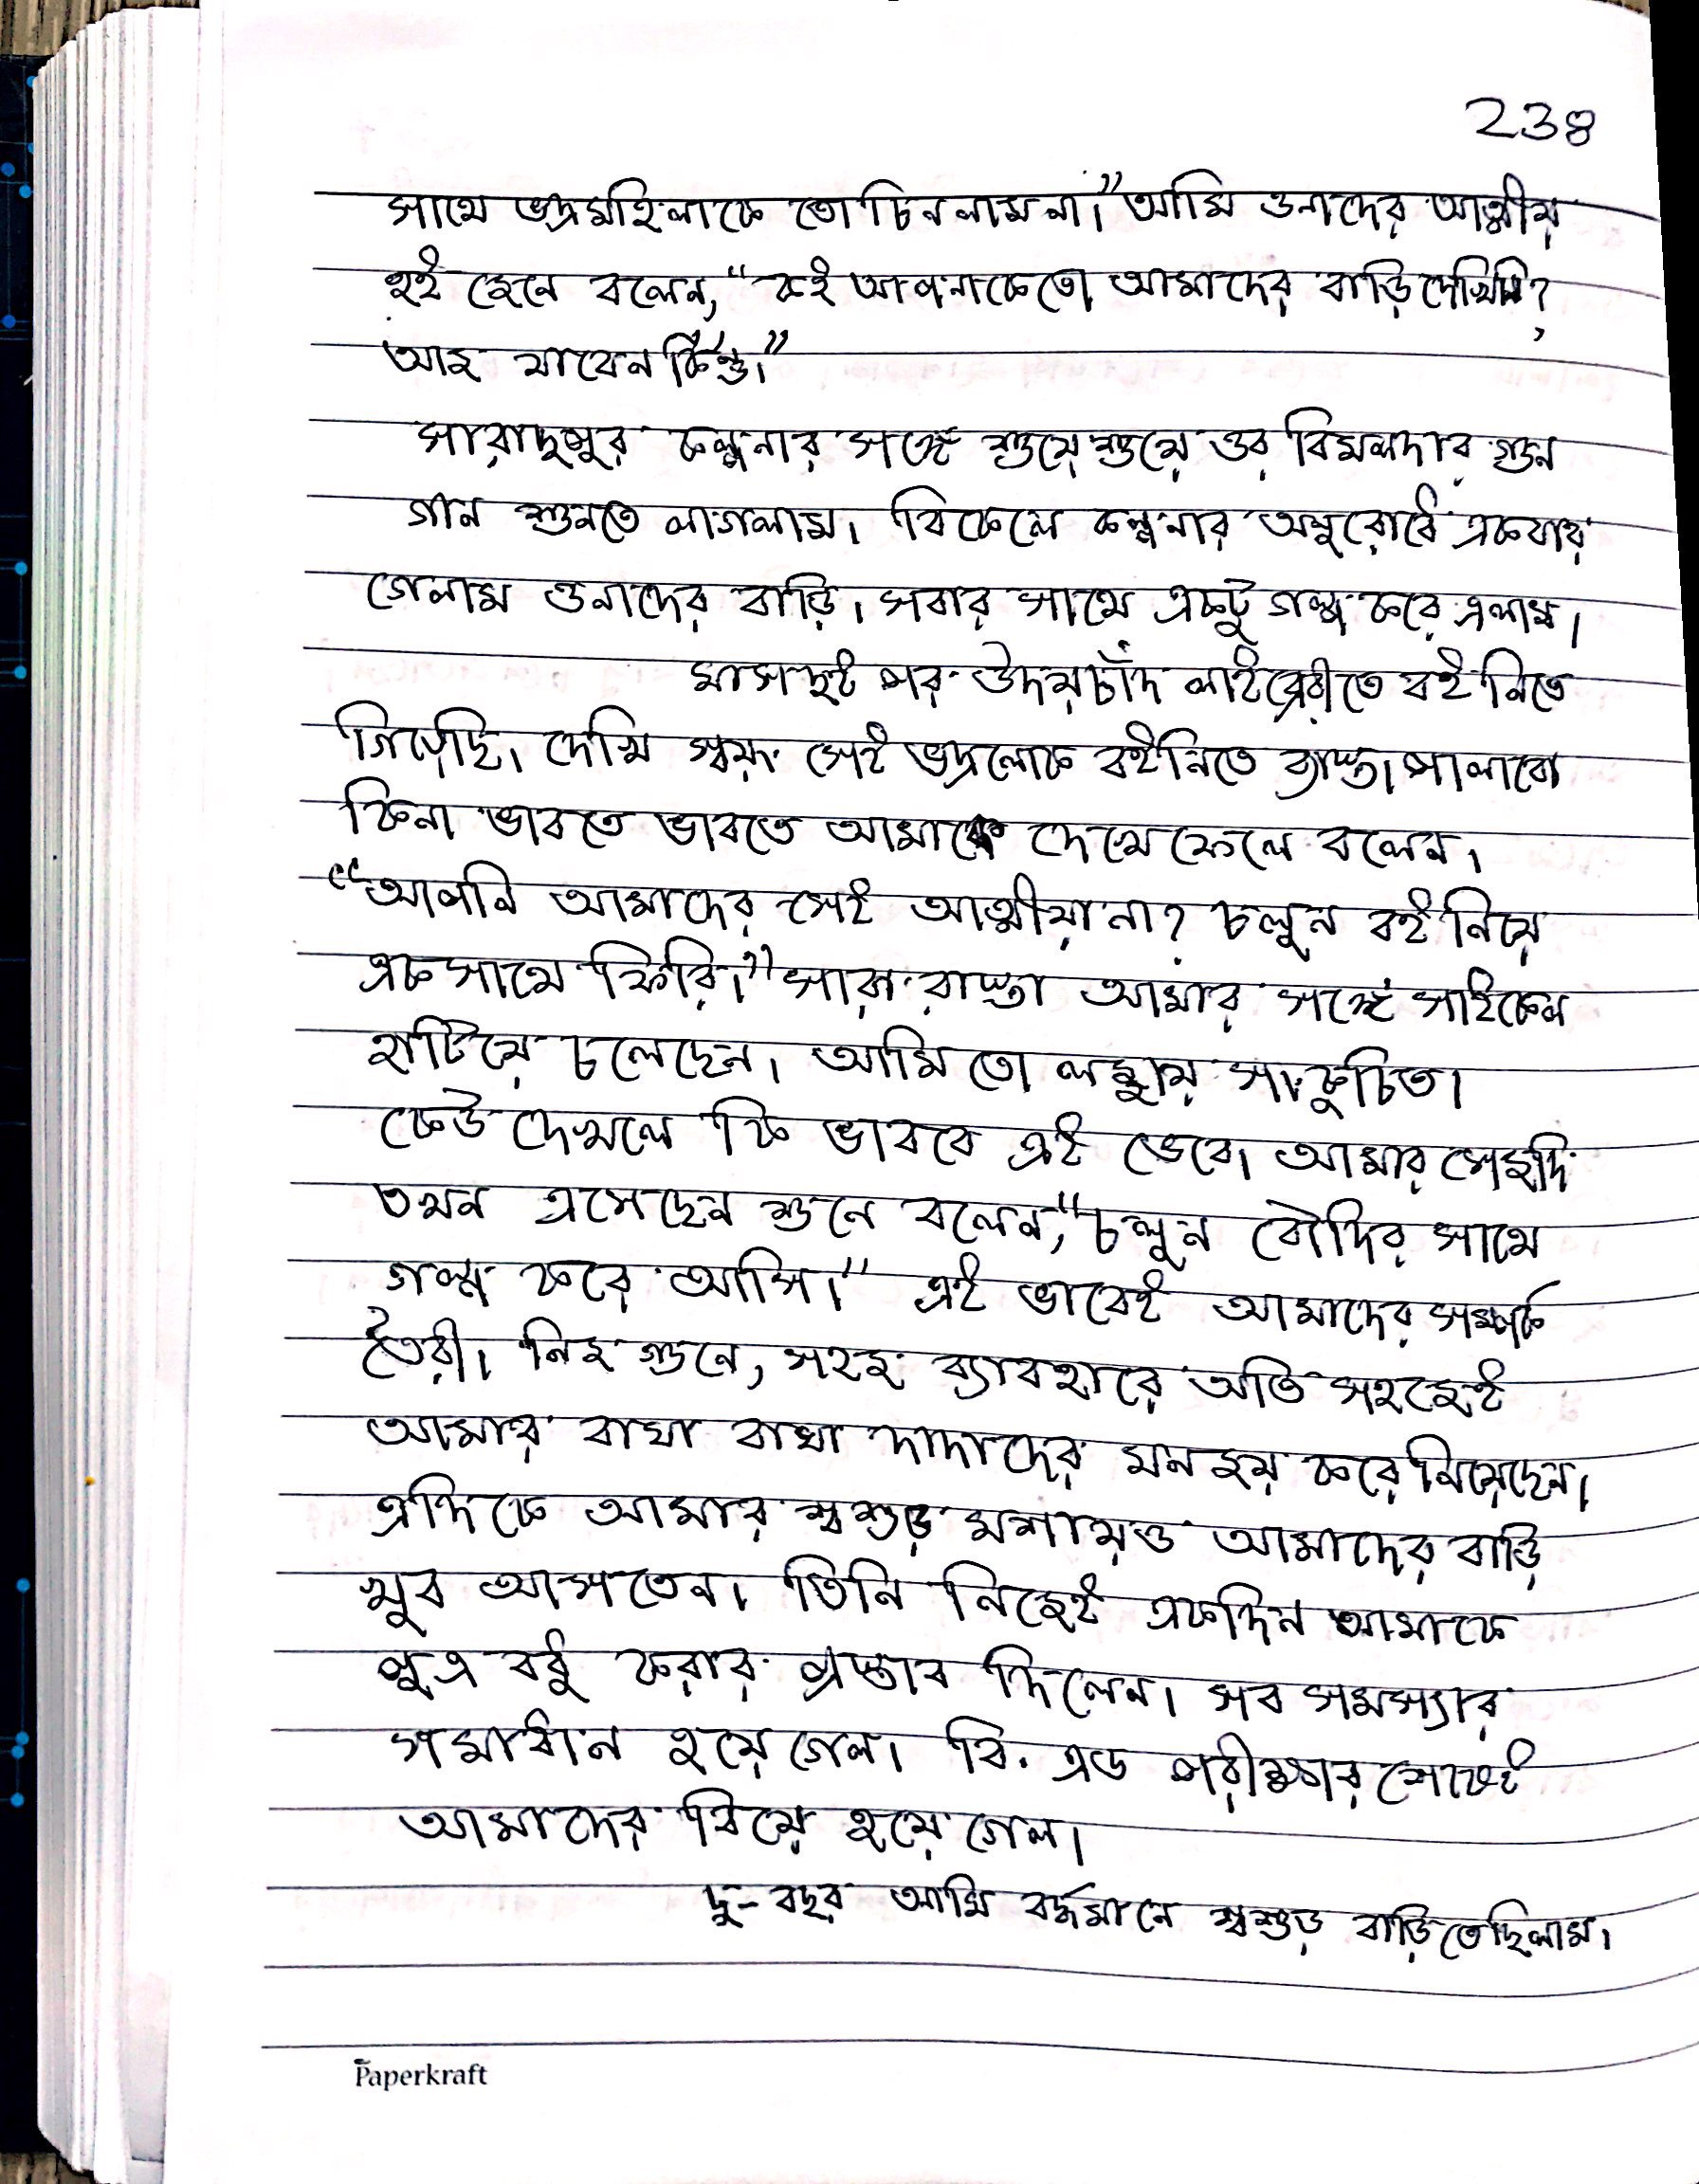 238
সাথে ভদ্রমহিলাকে তো চিনলাম না।" আমি ওনাদের আত্মীয়
হই জেনে বলেন, "কই আপনাকেতো আমাদের বাড়ি দেখিনি?
আজ যাবেন কিন্তু।"
সারাদুপুর কল্পনার সঙ্গে শুয়ে শুয়ে ওর বিমলদার গুন
গান শুনতে লাগলাম। বিকেলে কল্পনার অনুরোধে একবার
গেলাম ওনাদের বাড়ি। সবার সাথে একটু গল্প করে এলাম।
মাস দুই পর উদয়চাঁদ লাইব্রেরীতে বই নিতে
গিয়েছি। দেখি স্বয়ং সেই ভদ্রলোক বই নিতে ব্যাস্ত। পালাবো
কিনা ভাবতে ভাবতে আমাকে দেখে ফেলে বলেন।
"আপনি আমাদের সেই আত্মীয়া না? চলুন বই নিয়ে
এক সাথে ফিরি।" সারা রাস্তা আমার সঙ্গে সাইকেল
হাটিয়ে চলেছেন। আমি তো লজ্জায় সংকুচিত।
কেউ দেখলে কি ভাববে এই ভেবে। আমার সেজদি
তখন এসেছেন শুনে বলেন, "চলুন বৌদির সাথে
গল্প করে আসি।" এই ভাবেই আমাদের সম্পর্ক
তৈরী। নিজ গুনে, সহজ ব্যাবহারে অতি সহজেই
আমার বাঘা বাঘা দাদাদের মন জয় করে নিয়েছেন।
এদিকে আমার শ্বশুড় মশায়ও আমাদের বাড়ি
খুব আসতেন। তিনি নিজেই একদিন আমাকে
পুত্র বধু করার প্রস্তাব দিলেন। সব সমস্যার
সমাধান হয়ে গেল। বি. এড পরীক্ষার শেষেই
আমাদের বিয়ে হয়ে গেল।
দু-বছর আমি বর্দ্ধমানে শ্বশুড় বাড়িতে ছিলাম।
Paperkraft